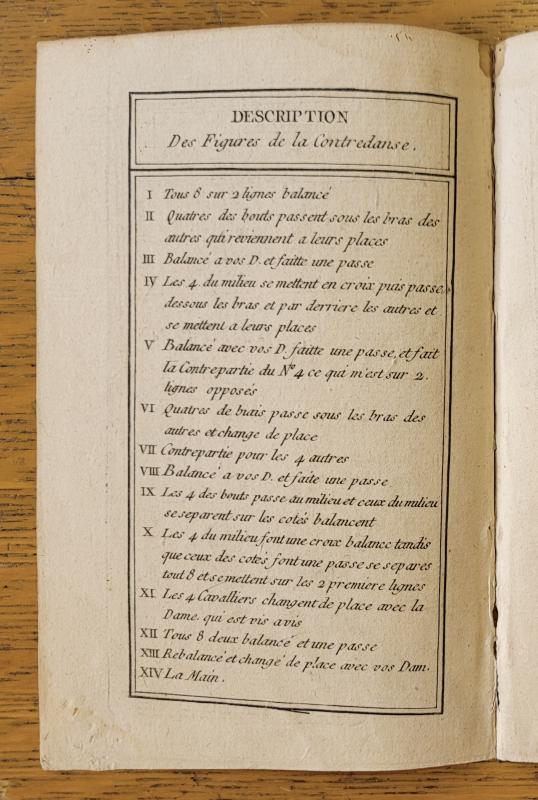 DESCRIPTION
Des Figures de la Contredanse.
I Tous 8 sur 2 lignes balancé
II Quatres des bouts passent sous les bras des
autres qui reviennent a leurs places
III Balancé a vos D. et faitte une passe
IV Les 4. du milieu se mettent en croix puis passe,
dessous les bras et par derriere les autres et
se mettent a leurs places
V Balancé avec vos D. faitte une passe, et fait
la Contrepartie du No. 4 ce qui m'est sur 2.
lignes opposés
VI Quatres de biais passe sous les bras des
autres et change de place
VII Contrepartie pour les 4 autres
VIII Balancé a vos D. et faite une passe
IX Les 4 des bouts passe au milieu et ceux du milieu
se separent sur les cotés balancent
X Les 4 du milieu font une croix balance tandis
que ceux des cotés, font une passe se separes
tout 8 et se mettent sur les 2 premiere lignes
XI Les 4 Cavalliers changent de place avec la
Dame qui est vis avis
XII Tous 8 deux balancé et une passe
XIII Rebalancé et changé de place avec vos Dam.
XIV La Main.